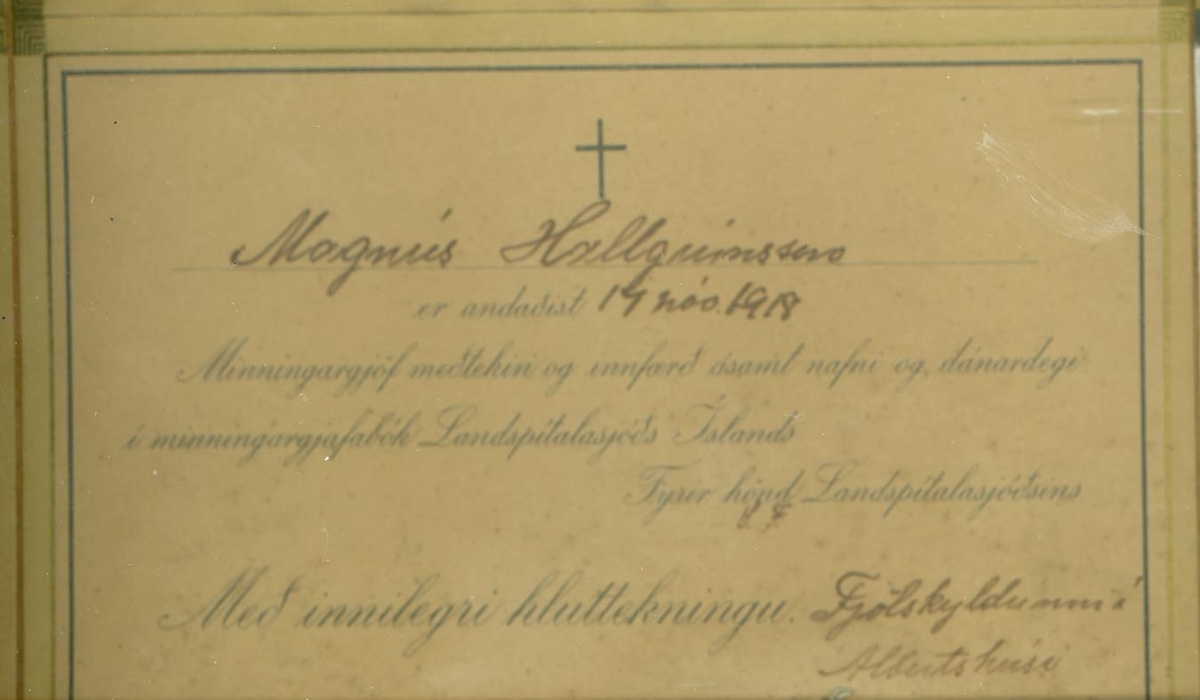 Magnús Hallgrímsson
er andaðist 19 nóv. 1918
Minningargjöf meðtekin og innfærð ásamt nafni og dánardegi
í minningargjafabók Landspítalasjóðs Íslands
Fyrir hönd Landspítalasjóðsins
Með innilegri hluttekningu. Fjölskyldunni í
Albertshúsi